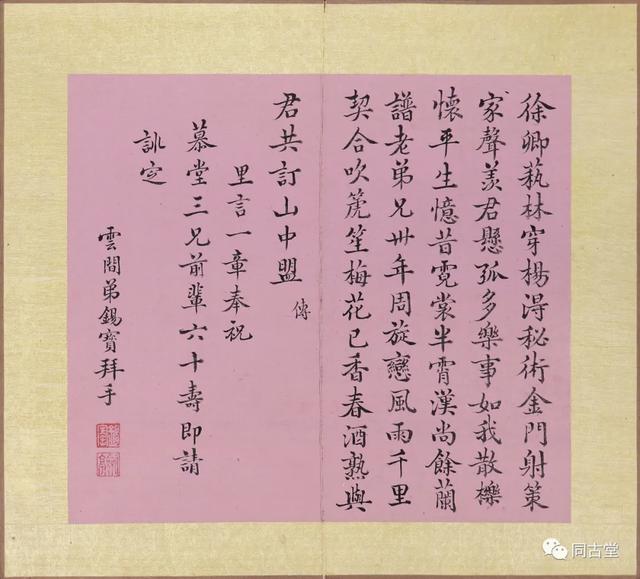 徐卿蓺林穿楊淂秘術金門射策
家聲羨君懸弧多樂事如我散櫟
懷平生憶昔霓裳半霄漢尚餘蘭
譜老弟兄卅年周旋戀風雨千里
契合吹箎笙梅花已香春酒熟與
君共訂山中盟
傳
里言一章奉祝
慕堂三兄前輩六十壽即請
訛定
雲間弟錫寶拜手
同古堂